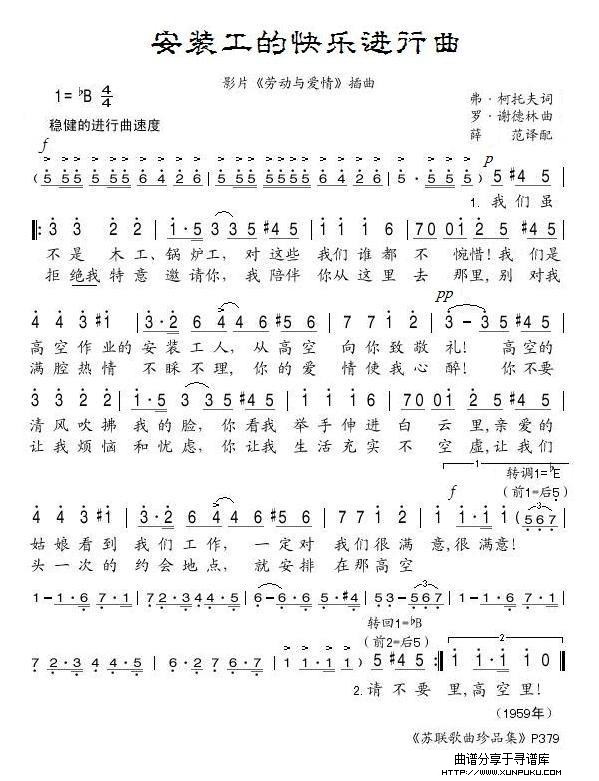 安装工的快乐进行曲
影片《劳动与爱情》插曲
1=♭B 4/4
弗·柯托夫词
稳健的进行曲速度
罗·谢德林曲
薛 范译配
f
p
(5 5 5 5 5 5 6 4 2 6 | 5 5 5 5 5 5 6 4 2 6 | 5 · 5 5 5) 5 #4 5
1. 我们虽
3 3 2 2 | 1·5 3 3 5 | 1 1 1 6 | 7 0 0 1 2 5 #4 5
不是 木工、锅炉工,对这些 我们谁都不 惋惜!我们是
拒绝我 特意 邀请你,我陪伴 你从这里去 那里,别对我
pp
4 4 3 #1 | 3·2 6 4 4 6 #5 6 | 7 7 1 2 | 3 - 3 5 #4 5
高空作业的 安装工人,从高空 向你致敬礼!高空的
满腔热情 不睬不理,你的爱 情使我心醉!你不要
3 3 2 2 | 1·5 3 3 5 #4 5 | 1 1 1 6 | 7 0 0 1 5 #4 5
清风吹拂 我的脸,你看我 举手伸进 白云里,亲爱的
让我烦恼 和忧虑,你让我 生活充实 不空虚,让我们
1
转调1=♭E
f
(前1=后5)
4 4 3 #1 | 3·2 6 4 4 6 #5 6 | 7 7 1 2 | 1 1·1 1 (5 6 7
姑娘看到 我们工作,一定对 我们很满意,很满意!
头一次的 约会地点,就安排 在那高空
1-1·6 7 | 1-1·6 7 | 6-6·5 6 | 5-5·#4 5 | 2-2·7 1 | 1-1·6 7
转回1=♭B
(前2=后5)
2
7 2·3 4 5 | 6·2 6·7 6 | 1 1 1 1) 5 #4 5 :| 1 1 1 0
2.请不要 里,高空里!
(1959年)
《苏联歌曲珍品集》P379
曲谱分享于寻谱库
HTTP://WWW.XUNPUKU.COM